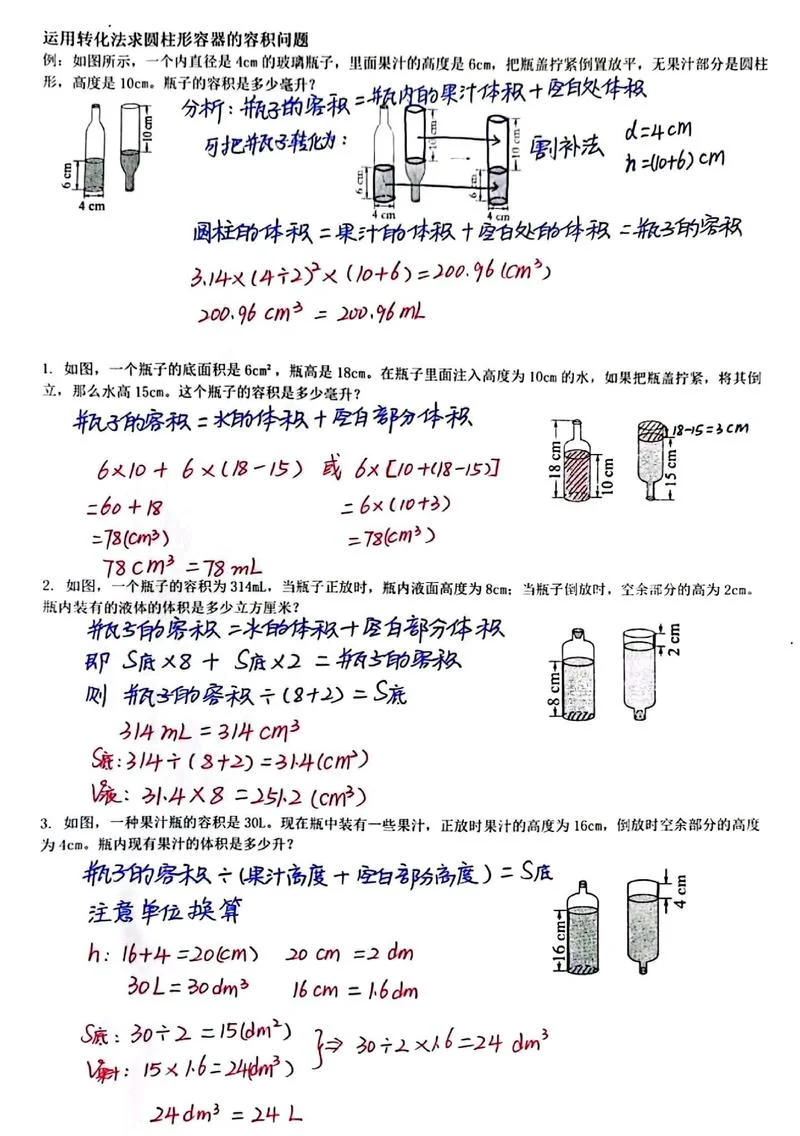 运用转化法求圆柱形容器的容积问题
例：如图所示，一个内直径是 4cm 的玻璃瓶子，里面果汁的高度是 6cm，把瓶盖拧紧倒置放平，无果汁部分是圆柱
形，高度是 10cm。瓶子的容积是多少毫升？
分析：瓶子的容积=瓶内的果汁体积+空白处体积
可把瓶子转化为：
割补法
d=4cm
h=(10+6)cm
6 cm
4 cm
10 cm
6 cm
4 cm
10 cm
10 cm
6 cm
4 cm
圆柱的体积=果汁的体积+空白处的体积=瓶子的容积
3.14×(4÷2)²×(10+6)=200.96(cm³)
200.96 cm³ = 200.96 mL
1. 如图，一个瓶子的底面积是 6cm²，瓶高是 18cm。在瓶子里面注入高度为 10cm 的水，如果把瓶盖拧紧，将其倒
立，那么水高 15cm。这个瓶子的容积是多少毫升？
瓶子的容积=水的体积+空白部分体积
18 cm
10 cm
15 cm
18-15=3cm
6×10 + 6×(18-15) 或 6×[10+(18-15)]
=60+18 =6×(10+3)
=78(cm³) =78(cm³)
78cm³=78mL
2. 如图，一个瓶子的容积为 314mL，当瓶子正放时，瓶内液面高度为 8cm；当瓶子倒放时，空余部分的高为 2cm。
瓶内装有的液体的体积是多少立方厘米？
瓶子的容积=水的体积+空白部分体积
即 S底×8 + S底×2 =瓶子的容积
则 瓶子的容积÷(8+2)=S底
8 cm
2 cm
314 mL = 314 cm³
S底:314÷(8+2)=31.4(cm²)
V液: 31.4×8=251.2(cm³)
3. 如图，一种果汁瓶的容积是 30L。现在瓶中装有一些果汁，正放时果汁的高度为 16cm，倒放时空余部分的高度
为 4cm。瓶内现有果汁的体积是多少升？
瓶子的容积÷(果汁高度+空白部分高度)=S底
注意单位换算
16 cm
4 cm
h: 16+4=20(cm) 20 cm =2 dm
30L=30dm³ 16 cm =1.6dm
S底: 30÷2=15(dm²)
V果汁: 15×1.6=24(dm³)
⇒ 30÷2×1.6=24 dm³
24dm³=24 L